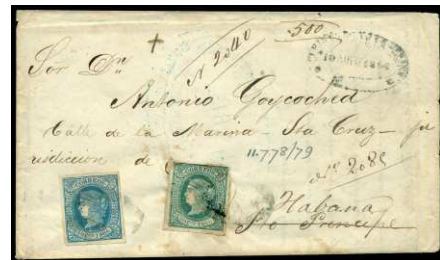 500
N 2040
Sor Dn
Antonio Goycochea
Calle de la Marina - Sta Cruz - ju
risdiccion de
11.778/79
nº 2085
Habana
Pto Principe
CORREOS
CORREOS